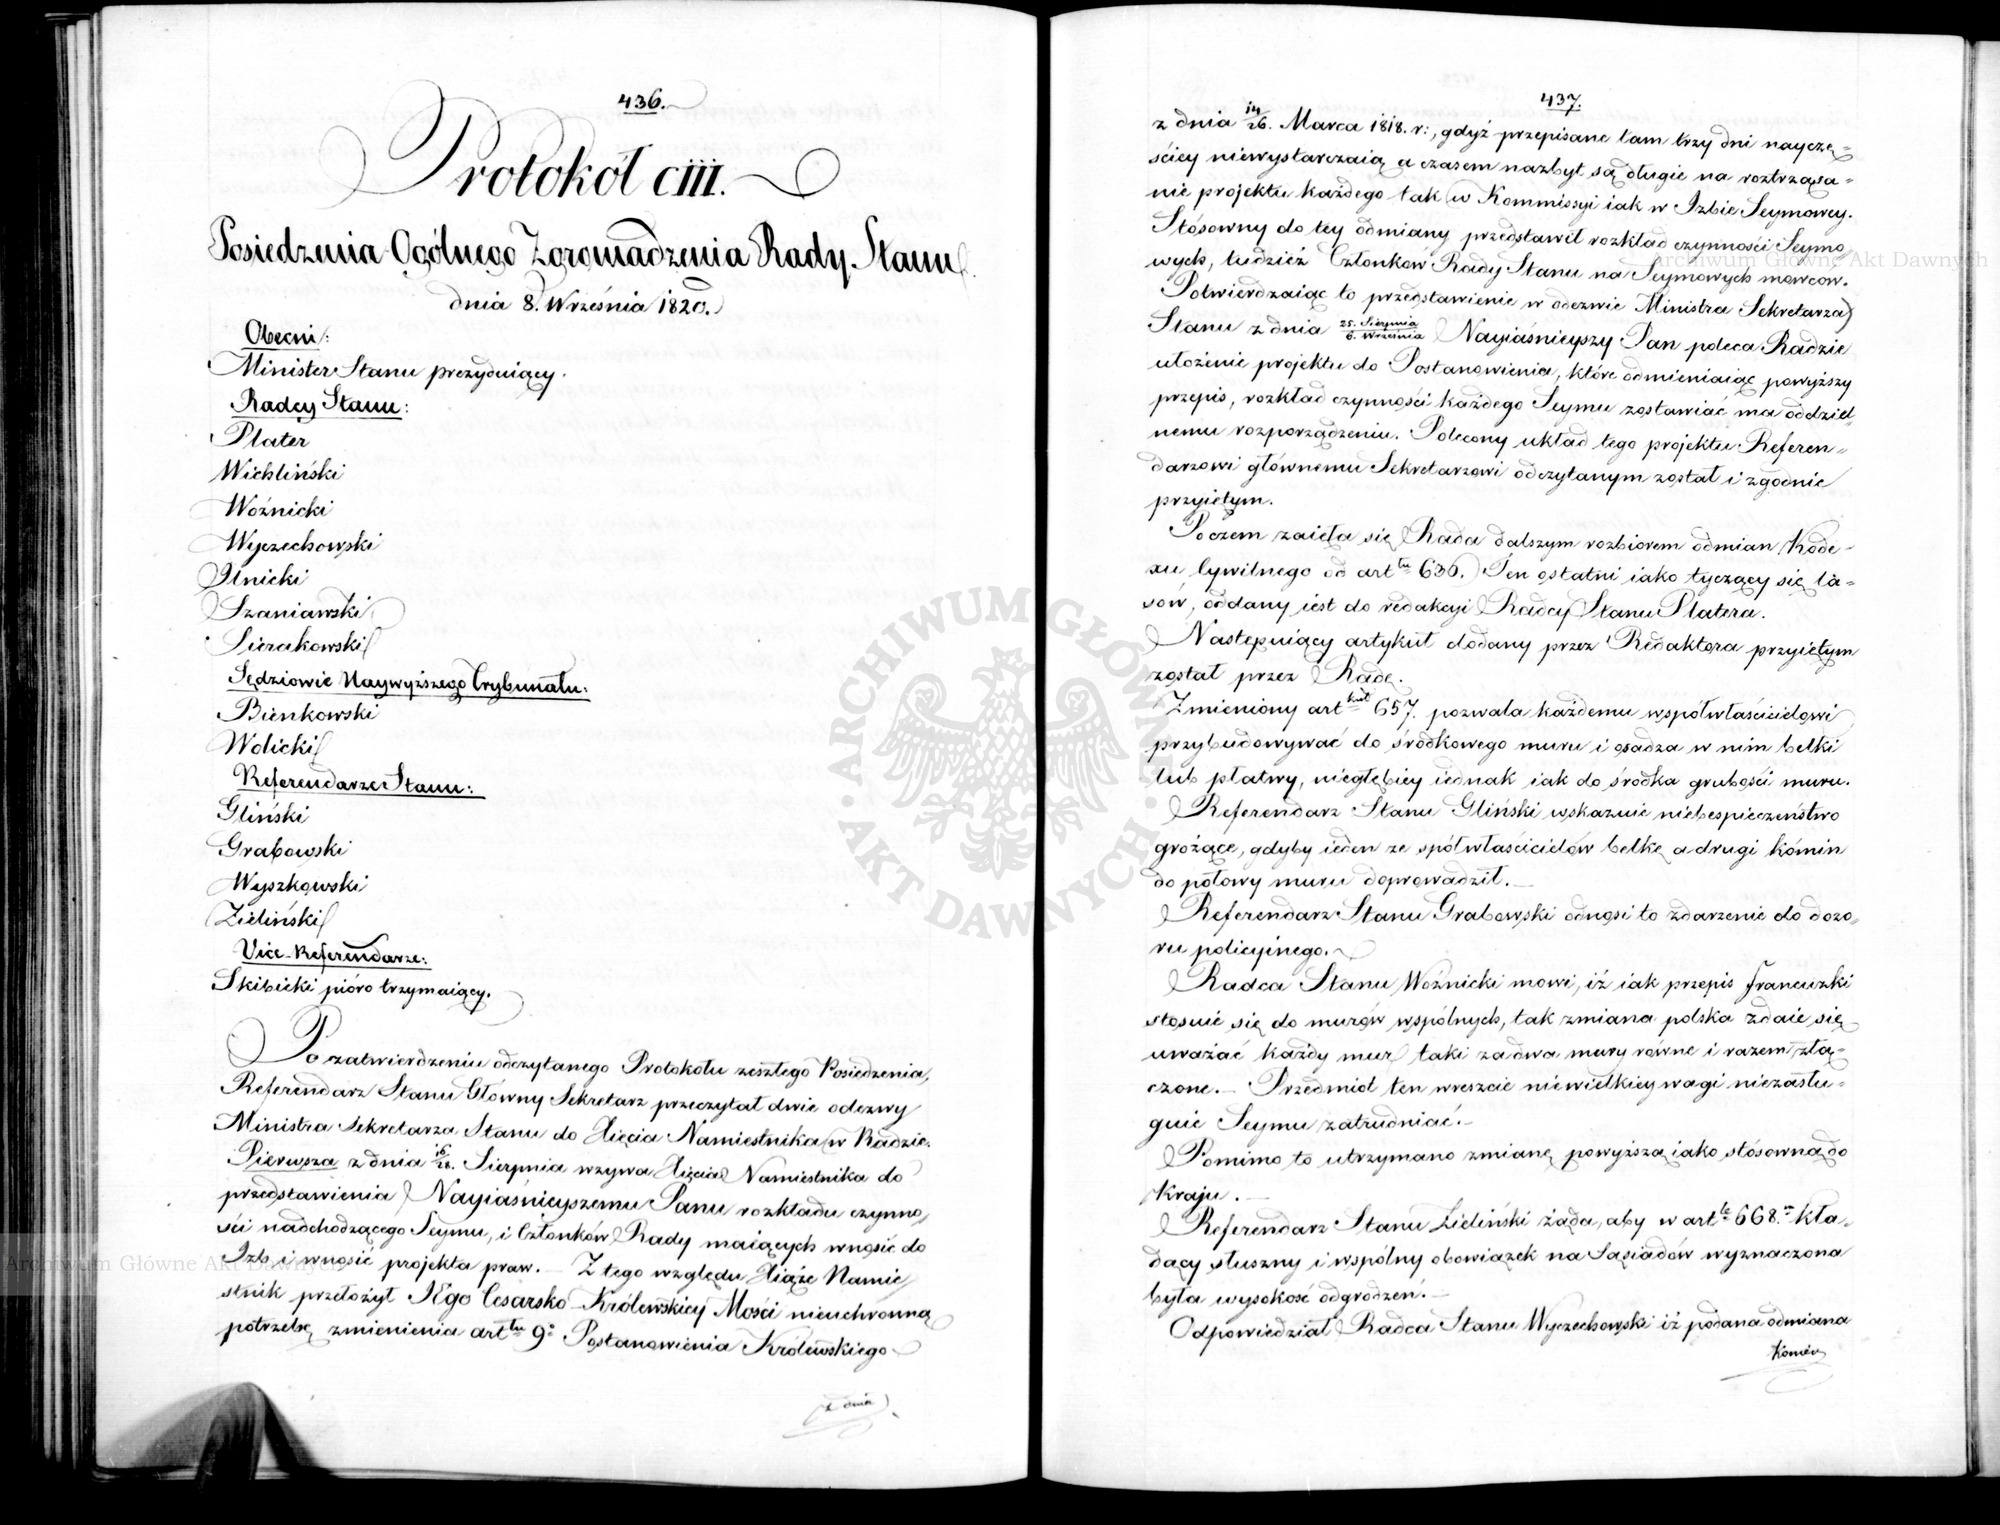 436.
Protokół CIII.
Posiedzenia Ogólnego Zgromadzenia Rady Stanu
dnia 8. Września 1820.
Obecni:
Minister Stanu prezyduiący.
Radcy Stanu:
Plater
Wichliński
Woźnicki
Wyczechowski
Ilnicki
Szaniawski
Sierakowski
Sędziowie Naywyższego Trybunału:
Bieńkowski
Wolicki
Referendarze Stanu:
Gliński
Grabowski
Wyszkowski
Zieliński
Vice-Referendarze:
Skibicki pióro trzymaiący.
Po zatwierdzeniu odczytanego Protokołu zeszłego Posiedzenia,
Referendarz Stanu Główny Sekretarz przeczytał dwie odezwy
Ministra Sekretarza Stanu do Xięcia Namiestnika w Radzie.
Pierwsza z dnia 16/28. Sierpnia wzywa Xięcia Namiestnika do
przedstawienia Nayiaśnieyszemu Panu rozkładu czynno
ści nadchodzącego Seymu, i Członków Rady maiących wnosić do
Izb i wnosić projekta praw. — Z tego względu Xiąże Namie
stnik przełożył JEgo Cesarsko-Królewskiey Mości nieuchronną
potrzebę zmienienia art tu 9° Postanowienia Królewskiego
z dnia
437.
z dnia 14/26. Marca 1818. r:, gdyż przepisane tam trzy dni naycze=
ściey niewystarczaią a czasem nazbyt są długie na roztrząsa=
nie projektu każdego tak w Kommissyi iak w Izbie Seymowey.
Stósowny do tey odmiany przedstawił rozkład czynności Seymo
wych, tudzież Członków Rady Stanu na Seymowych mowców.
Potwierdzaiąc to przedstawienie w odezwie Ministra Sekretarza
Stanu z dnia 25. Sierpnia/6. Września Nayiaśnieyszy Pan poleca Radzie
ułożenie projektu do Postanowienia, które odmieniaiąc powyższy
przepis, rozkład czynności każdego Seymu zostawiać ma oddziel=
nemu rozporządzeniu. Polecony układ tego projektu Referen=
darzowi głównemu Sekretarzowi odczytanym został i zgodnie
przyiętym.
Poczem zaięła się Rada dalszym rozbiorem odmian Kode=
xu Cywilnego od art tu 636. Ten ostatni iako tyczący się la=
sów, oddany iest do redakcyi Radcy Stanu Platera.
Następuiący artykuł dodany przez Redaktora przyiętym
został przez Radę.
Zmieniony art kuł 657. pozwala każdemu współwłaścicielowi
przybudowywać do środkowego muru i osadza w nim belki
lub płatwy, niegłębiey iednak iak do środka grubości muru.
Referendarz Stanu Gliński wskazuie niebespieczeństwo
grożące, gdyby ieden ze spółwłaścicielów belkę a drugi kómin
do połowy muru doprowadził. —
Referendarz Stanu Grabowski odnosi to zdarzenie do dozo=
ru policyinego.
Radca Stanu Woźnicki mowi, iż iak przepis francuzki
stosuie się do murów wspólnych, tak zmiana polska zdaie się
uważać każdy mur taki za dwa mury równe i razem złą=
czone. — Przedmiot ten wreszcie niewielkiey wagi niezasłu=
guie Seymu zatrudniać. —
Pomimo to utrzymano zmianę powyższą iako stósowną do
kraju. —
Referendarz Stanu Zieliński żąda, aby w art le 668. m kła=
dący słuszny i wspólny obowiązek na Sąsiadów wyznaczona
była wysokość odgrodzeń. —
Odpowiedział Radca Stanu Wyczechowski iż podana odmiana
Komien
ARCHIWUM GŁÓWNE AKT DAWNYCH
Archiwum Główne Akt Dawnych
Archiwum Główne Akt Dawnych